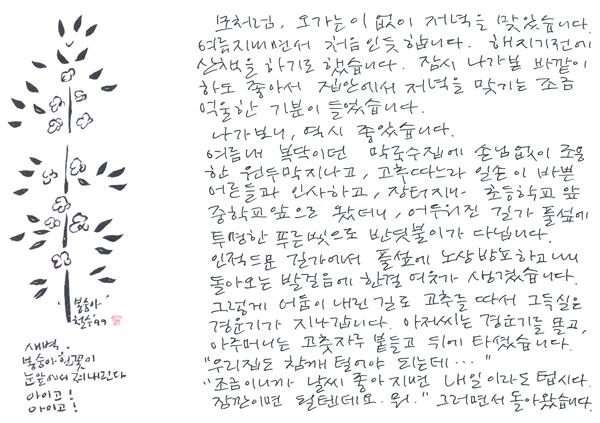 모처럼, 오가는 이 없이 저녁을 맞았습니다.
여름지내면서 처음인듯 합니다. 해지기전에
산책을 하기로 했습니다. 잠시 나가본 바깥이
하도 좋아서 집안에서 저녁을 맞기는 조금
억울한 기분이 들었습니다.
나가보니, 역시 좋았습니다.
여름내 복닥이던 막국수집에 손님없이 조용
한 원두막지나고, 고추따느라 일손이 바쁜
어른들과 인사하고, 장터지나 초등학교 앞
중학교 앞으로 왔더니, 어두워진 길가 풀섶에
투명한 푸른빛으로 반딧불이가 다닙니다.
인적드문 길가에서 풀섶에 노상방뇨하고
돌아오는 발걸음에 한결 여유가 생겼습니다.
그렇게 어둠이 내린 길로 고추를 따서 그득실은
경운기가 지나갑니다. 아저씨는 경운기를 몰고,
아주머니는 고춧자루 붙들고 뒤에 타셨습니다.
"우리집도 함께 털어야 되는데···"
"조금이니까 날씨 좋아지면 내일이라도 텁시다.
잠깐이면 털텐데요. 뭐." 그러면서 돌아왔습니다.
봉숭아
철수 '99
새벽.
봉숭아 흰꽃이
눈앞에서 져내린다
아이고!
아이고!